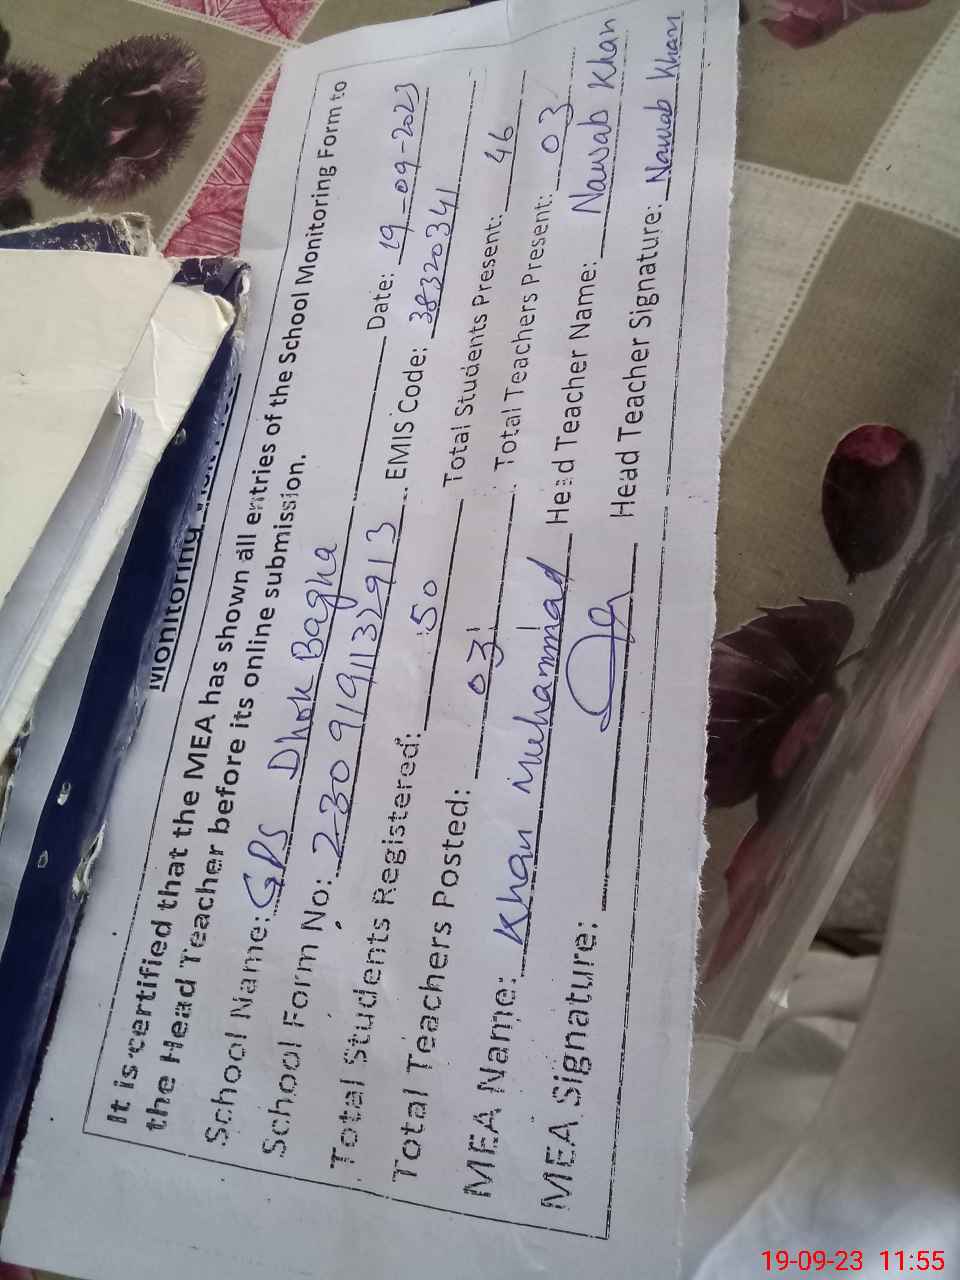 Monitoring
It is certified that the MEA has shown all entries of the School Monitoring Form to
the Head Teacher before its online submission.
School Name: GPS Dhok Bagha Date: 19-09-2023
School Form No: 2309191132913 EMIS Code: 38320341
Total Students Registered: 50 Total Students Present: 46
Total Teachers Posted: 03 Total Teachers Present: 03
MEA Name: Khan Muhammad Head Teacher Name: Nawab Khan
MEA Signature: Head Teacher Signature: Nawab Khan
19-09-23 11:55